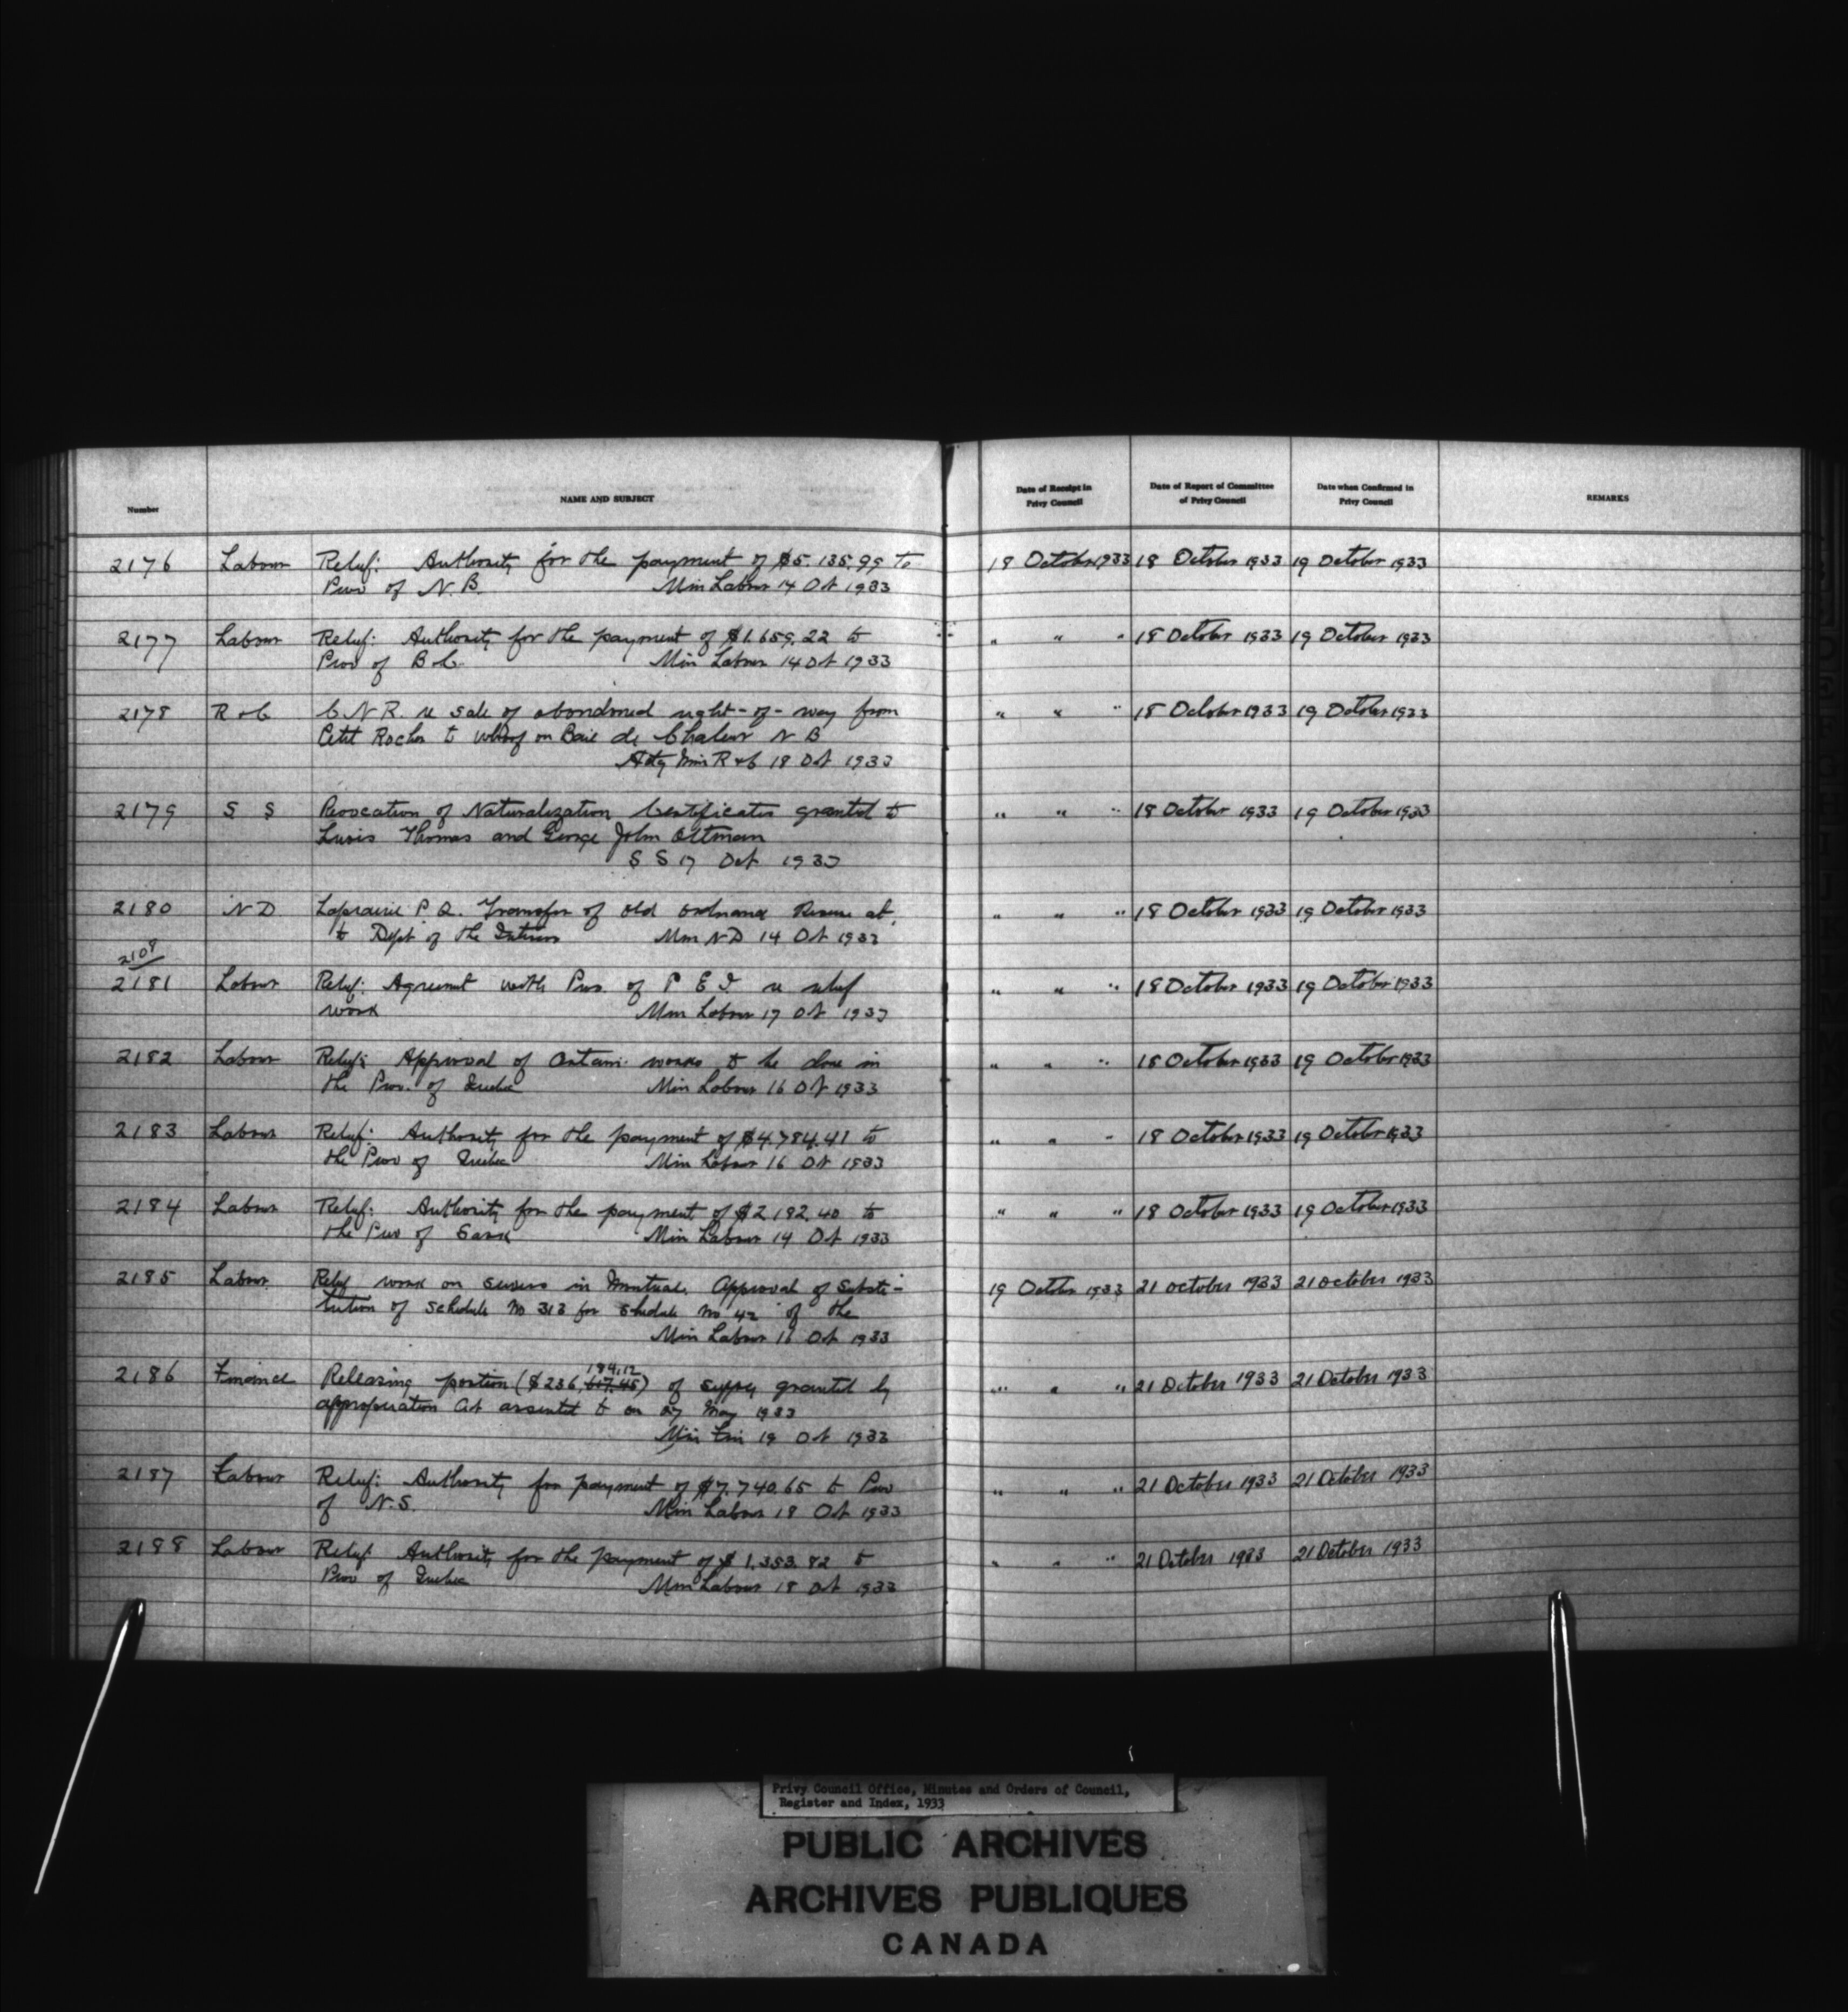 Number
NAME AND SUBJECT
Date of Receipt in
Privy Council
Date of Report of Committee
of Privy Council
Date when Confirmed in
Privy Council
REMARKS
2176 Labour Relief: Authority for the payment of $5,135.99 To 18 October 1933 18 October 1933 19 October 1933
Prov of N.B. Min Labour 14 Oct 1933
2177 Labour Relief: Authority for the payment of $1,659.22 to " " " 18 October 1933 19 October 1933
Prov of B.C. Min Labour 14 Oct 1933
2178 R & C C N R. re sale of abandoned right-of-way from " " " 18 October 1933 19 October 1933
Petit Rocher to wharf on Baie de Chaleur N B
Actg Min R & C 18 Oct 1933
2179 S S Revocation of Naturalization Certificates granted to " " " 18 October 1933 19 October 1933
Thomas and George John
S S 17 Oct 1933
2180 N D Laprairie P.Q. Transfer of old ordnance Reserve at " " " 18 October 1933 19 October 1933
to Dept of the Interior Min N D 14 Oct 1933
2108
2181 Labour Relief: Agreement with Prov. of P E I re relief " " " 18 October 1933 19 October 1933
work Min Labour 17 Oct 1933
2182 Labour Relief: Approval of certain works to be done in " " " 18 October 1933 19 October 1933
the Prov. of Quebec Min Labour 16 Oct 1933
2183 Labour Relief: Authority for the payment of $4,784.41 to " " " 18 October 1933 19 October 1933
the Prov of Quebec Min Labour 16 Oct 1933
2184 Labour Relief: Authority for the payment of $2,192.40 to " " " 18 October 1933 19 October 1933
the Prov of Sask Min Labour 14 Oct 1933
2185 Labour Relief work on sewers in Montreal. Approval of Substi- 19 October 1933 21 October 1933 21 October 1933
tution of schedule No 313 for schedule No 42 of the
Min Labour 16 Oct 1933
184.12
2186 Finance Releasing portion ($236,617.45) of supply granted by " " " 21 October 1933 21 October 1933
appropriation Act assented to on 27 May 1933
Min Fin 19 Oct 1933
2187 Labour Relief: Authority for payment of $7,740.65 to Prov " " " 21 October 1933 21 October 1933
of N.S. Min Labour 18 Oct 1933
2188 Labour Relief Authority for the payment of $1,353.82 to " " " 21 October 1933 21 October 1933
Prov of Quebec Min Labour 18 Oct 1933
Privy Council Office, Minutes and Orders of Council,
Register and Index, 1933
PUBLIC ARCHIVES
ARCHIVES PUBLIQUES
CANADA